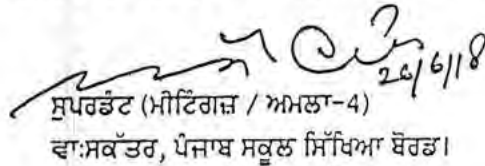 26/6/18
ਸੁਪਰਡੰਟ (ਮੀਟਿੰਗਜ਼ / ਅਮਲਾ-4)
ਵਾ:ਸਕੱਤਰ, ਪੰਜਾਬ ਸਕੂਲ ਸਿੱਖਿਆ ਬੋਰਡ।